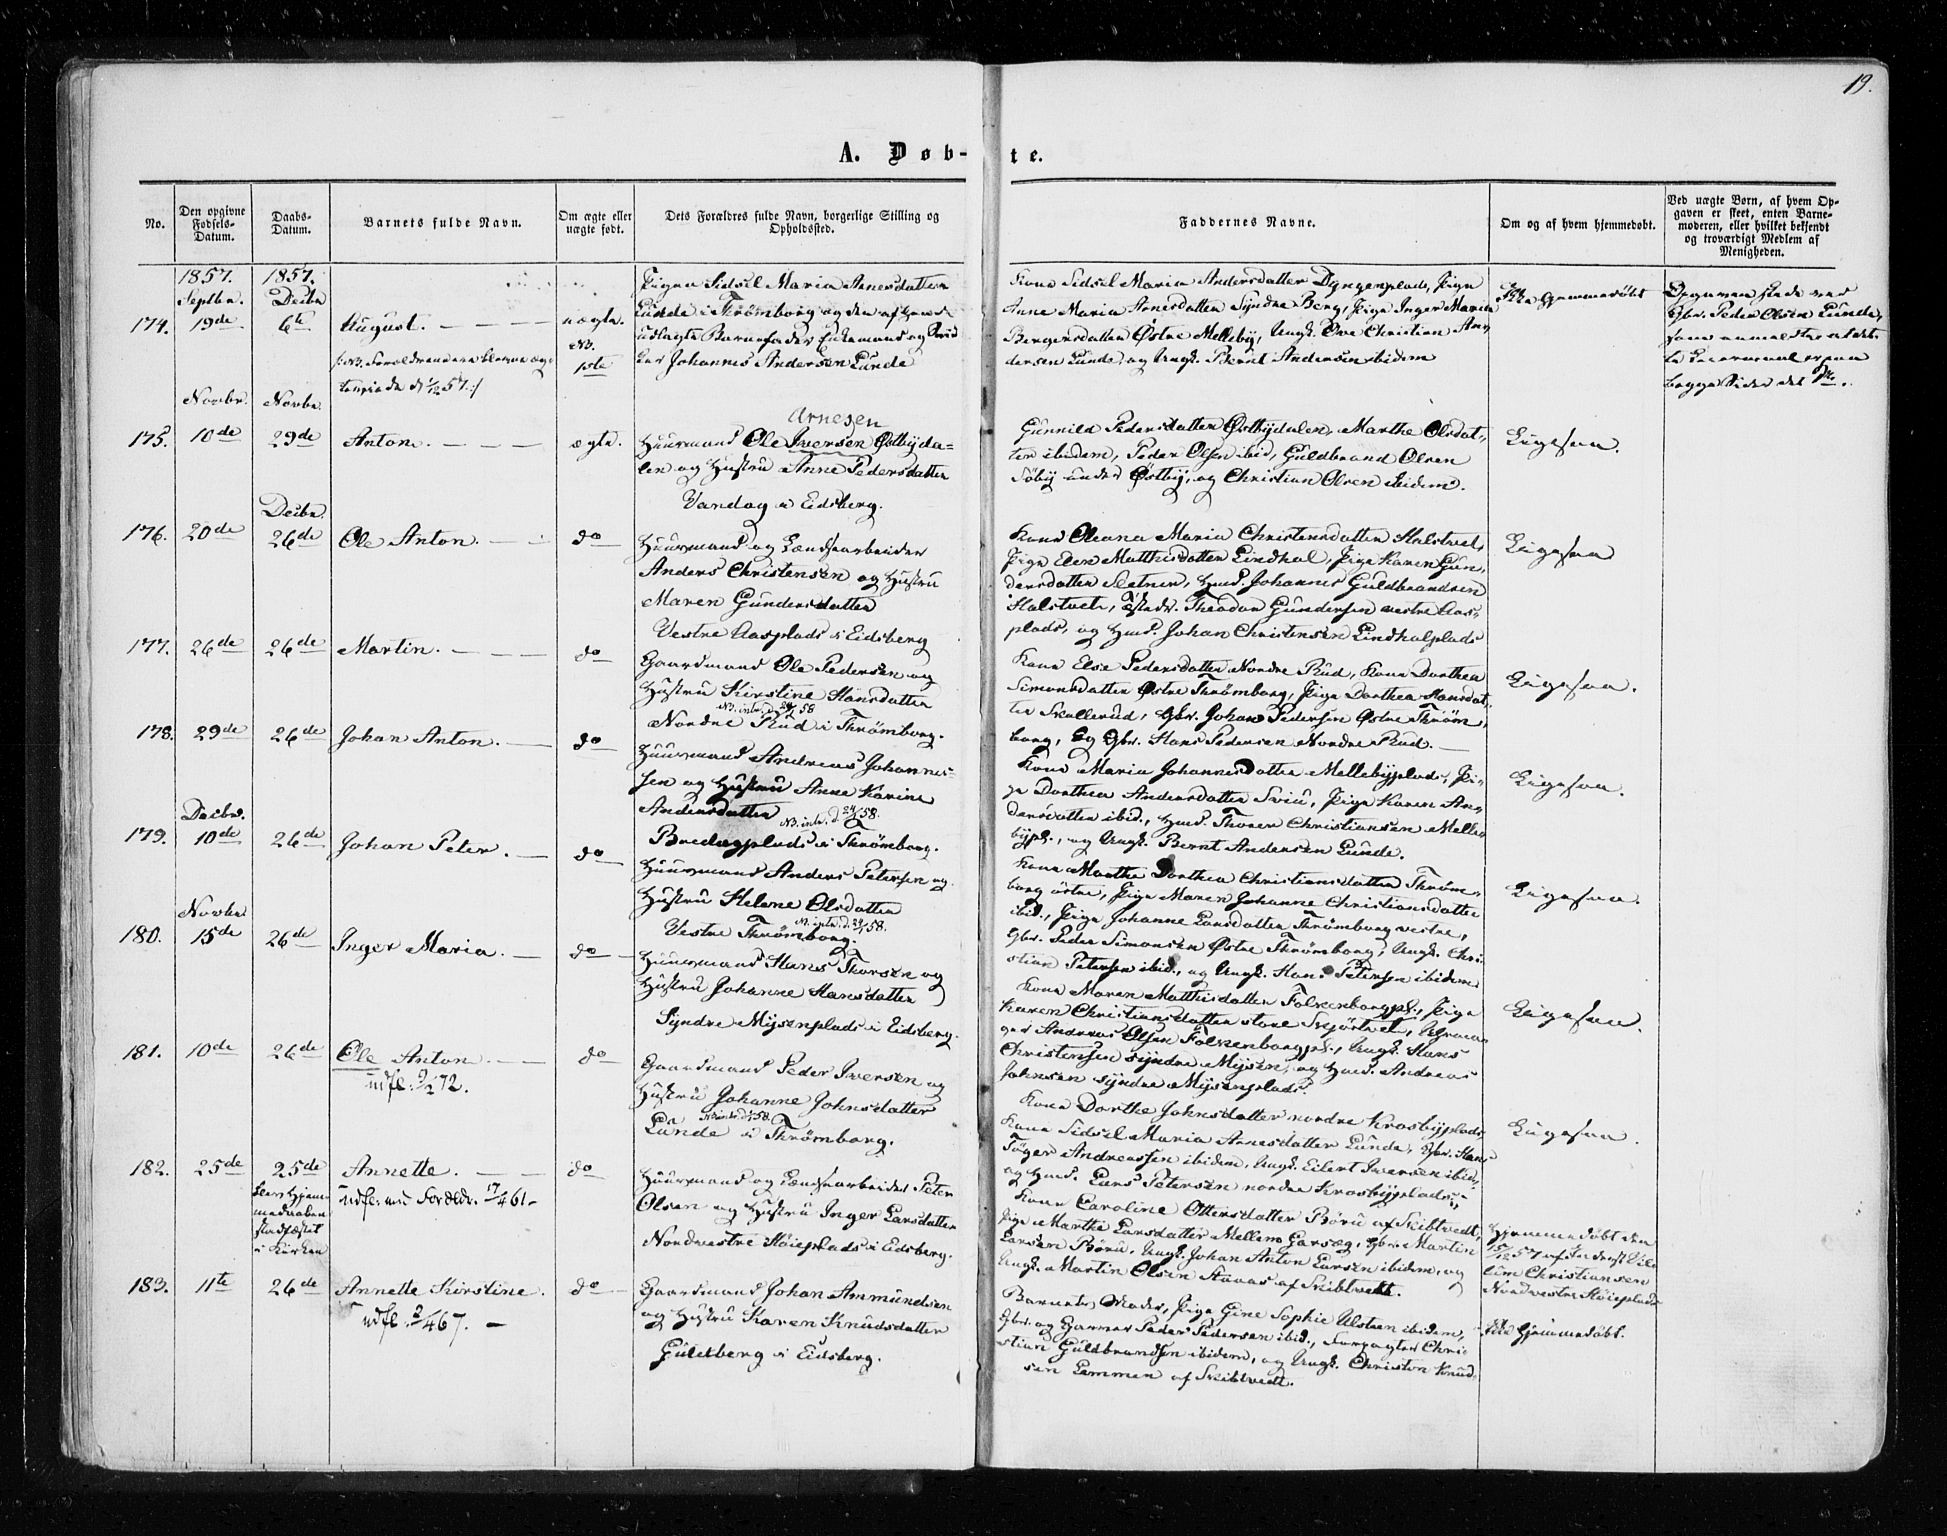 19.
A. Døb-te.
No.
Den opgivne Fødsels-Datum.
Daabs-Datum.
Barnets fulde Navn.
Om ægte eller uægte født.
Dets Forældres fulde Navn, borgerlige Stilling og Opholdssted.
Faddernes Navne.
Om og af hvem hjemmedøbt.
Ved uægte Børn, af hvem Opgaven er skeet, enten Barnemoderen, eller hvilket bekjendt og troværdigt Medlem af Menigheden.
1857. 1857.
Septbr. Decbr.
174. 19de 6te August. uægte.
NB. 1ste
Pigen Sidsel Maria Arnesdatter
Lunde i Thrømborg og den af hende
udlagte Barnefader Enkemand og
Johannes Andersen Lunde
Kone Sidsel Maria Andersdatter Dyngenplads, Pige
Anne Maria Arnesdatter Syndre Berg, Pige Inger Maria
Bergersdatter Østre Melleby, Ungk. Ove Christian An-
dersen Lunde, og Ungk. Bernt Andersen ibidem
Ikke hjemmedøbt
Novbr. Novbr.
175. 10de 29de Anton. ægte.
Arnesen
Huusmand Ole Iversen Østbyda-
len og Hustru Anne Pedersdatter
Vandug i Eidsberg.
Gunnild Pedersdatter Østbydalen, Marthe Olsdat-
ter ibidem, Peder Olsen ibid, Guldbrand Olsen
Søby under Østby, og Christian Olsen ibidem.
Ligesaa.
Decbr.
176. 20de 26de Ole Anton. do
Huusmand og
Anders Christensen og Hustru
Maren Gundersdatter
Vestre Aasplads i Eidsberg
Kone Oleana Maria Christensdatter Halstvet,
Pige Elen Matthisdatter Lindhol, Pige Karen Gun-
dersdatter Sletner, Hmd. Johannes Guldbrandsen
Halstvet, Theodor Gundersen vestre Aas-
plads, og Hmd. Johan Christensen Lindholplads
Ligesaa
177. 26de 26de Martin. do
Gaardmand Ole Pedersen og
Hustru Kirstine Hansdatter
Nordre Rud i Thrømborg.
Kone Else Pedersdatter Nordre Rud, Kone Dorthea
Simonsdatter Østre Thrømborg, Pige Dorthea Hansdat-
ter Skallerud, Gbr. Johan Pedersen Østre Thrøm-
borg, og Gbr. Hans Pedersen Nordre Rud.
Ligesaa.
178. 29de 26de Johan Anton. do
Huusmand Andreas Johannes-
sen og Hustru Anne Karine
Andersdatter
i Thrømborg.
Kone Maria Johannesdatter Mellebyplads, Pi-
ge Dorthea Andersdatter Sviu, Pige Karen An-
dersdatter ibid., Hmd. Thorer Christiansen Melle-
bypl., og Ungk. Bernt Andersen Lunde.
Ligesaa.
Decbr.
179. 10de 26de Johan Peter. do
Huusmand Anders Petersen og
Hustru Helene Olsdatter
Vestre Thrømborg.
Kone Marthe Dorthea Christiansdatter Thrøm-
borg østre, Pige Maren Johanne Christiansdatter
ibid., Pige Johanne Larsdatter Thrømborg vestre,
Gbr. Peder Simonsen Østre Thrømborg, Ungk. Chri-
stian Petersen ibid., og Ungk. Hans Petersen ibidem
Ligesaa.
Novbr.
180. 15de 26de Inger Maria. do
Huusmand Hans Thorsen og
Hustru Johanne Hansdatter
Syndre Mysenplads i Eidsberg.
Kone Maren Matthisdatter Folkenborgpl., Pige
Karen Christiansdatter store
Andreas Olsen Folkenborgpl., Ungk. Hans
Christensen syndre Mysen, og Hmd. Andreas
Johnsen syndre Mysenplads.
Ligesaa.
181. 10de 26de Ole Anton. do
udfl. 9/4 72.
Gaardmand Peder Iversen og
Hustru Johanne Johnsdatter
Lunde i Thrømborg.
Kone Dorthe Johnsdatter nordre Krosbyplads,
Kone Sidsel Maria Arnesdatter Lunde, Gbr. Hans
Tøger Andreassen ibidem, Ungk. Eilert Iversen ibid.,
og Hmd. Lars Petersen nordre Krosbyplads.
Ligesaa.
182. 25de 25de Annette. do
udfl. med Forældr. 17/4 61
Hjem-
medaaben
stadfæstet
i Kirken
Huusmand og Peter
Olsen og Hustru Inger Larsdatter
Nordvestre Høieplads i Eidsberg.
Kone Caroline Ottersdatter Børu af Skibtvedt,
Pige Marthe Larsdatter Mellem Garseg, Gbr. Martin
Larsen Børu, Ungk. Johan Anton Larsen ibidem, og
Ungk. Martin Olsen Staaas af Skibtvedt.
Hjemmedøbt den
Christiansen
Nordvestre Høieplads
183. 11te 26de Annette Kirstine. do
udfl. 2/4 67.
Gaardmand Johan Ammundsen
og Hustru Karen Knudsdatter
Guldberg i Eidsberg.
Barnets Moder, Pige Gine Sophie Ulsteen ibidem,
Gbr. og Garver Peder Pedersen ibid., Forpagter Chri-
stian Guldbrandsen ibidem, og Ungk. Christen Knud-
sen Lemmen af Skibtvedt.
Ikke Hjemmedøbt.